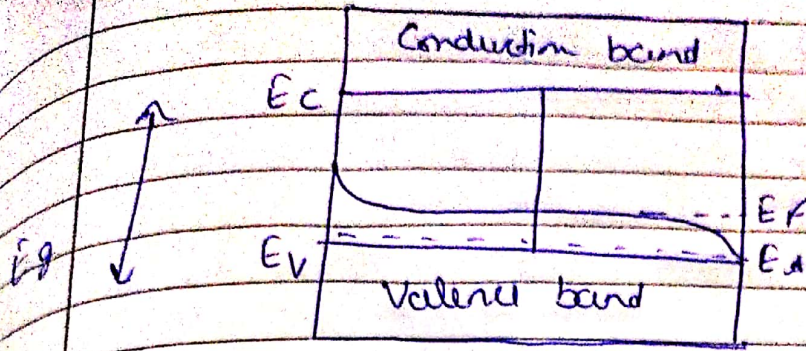 Conduction band
Ec
EF
Eg
Ev
EA
Valence band